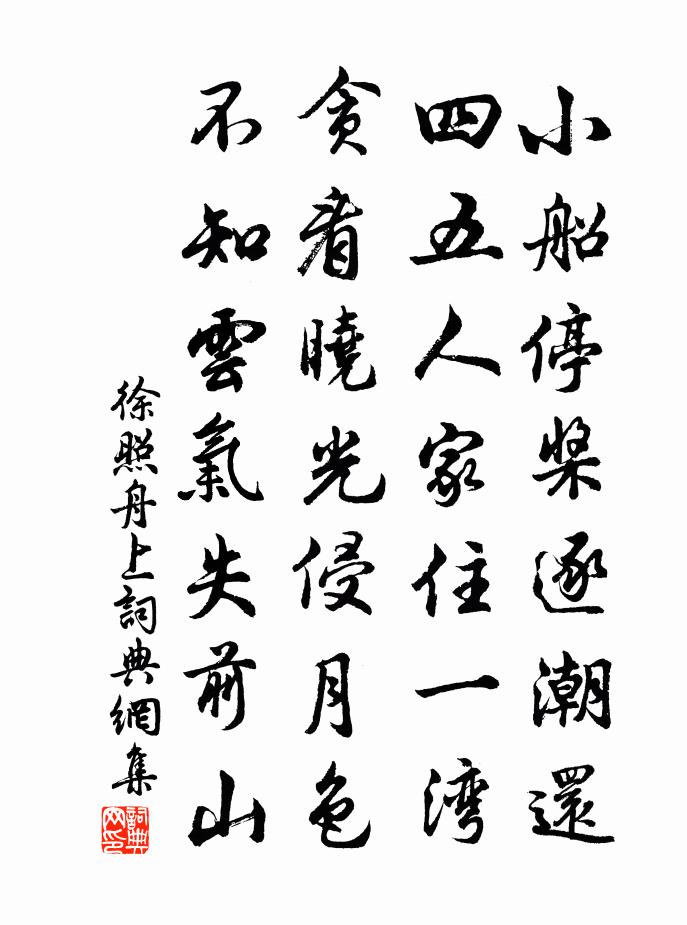 小船停槳逐潮還
四五人家住一湾
贪看曉光侵月色
不知雲氣失前山
徐照舟上詞典網集
詞典网印